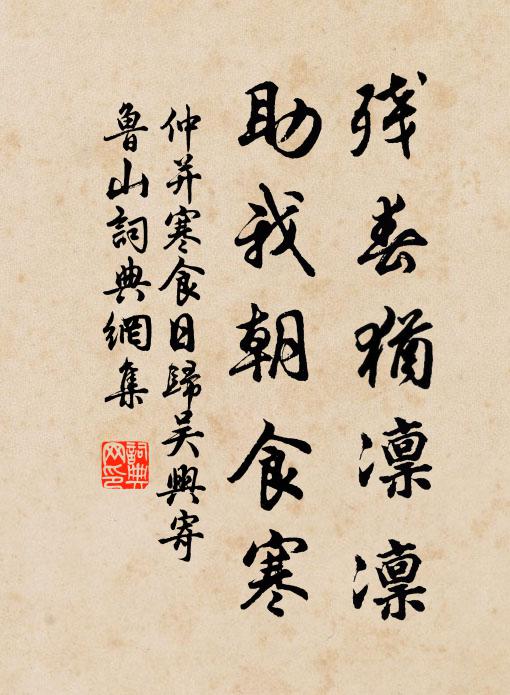 残春猶凛凛
助我朝食寒
仲并寒食日歸吴興寄
魯山詞典網集
詞典网印